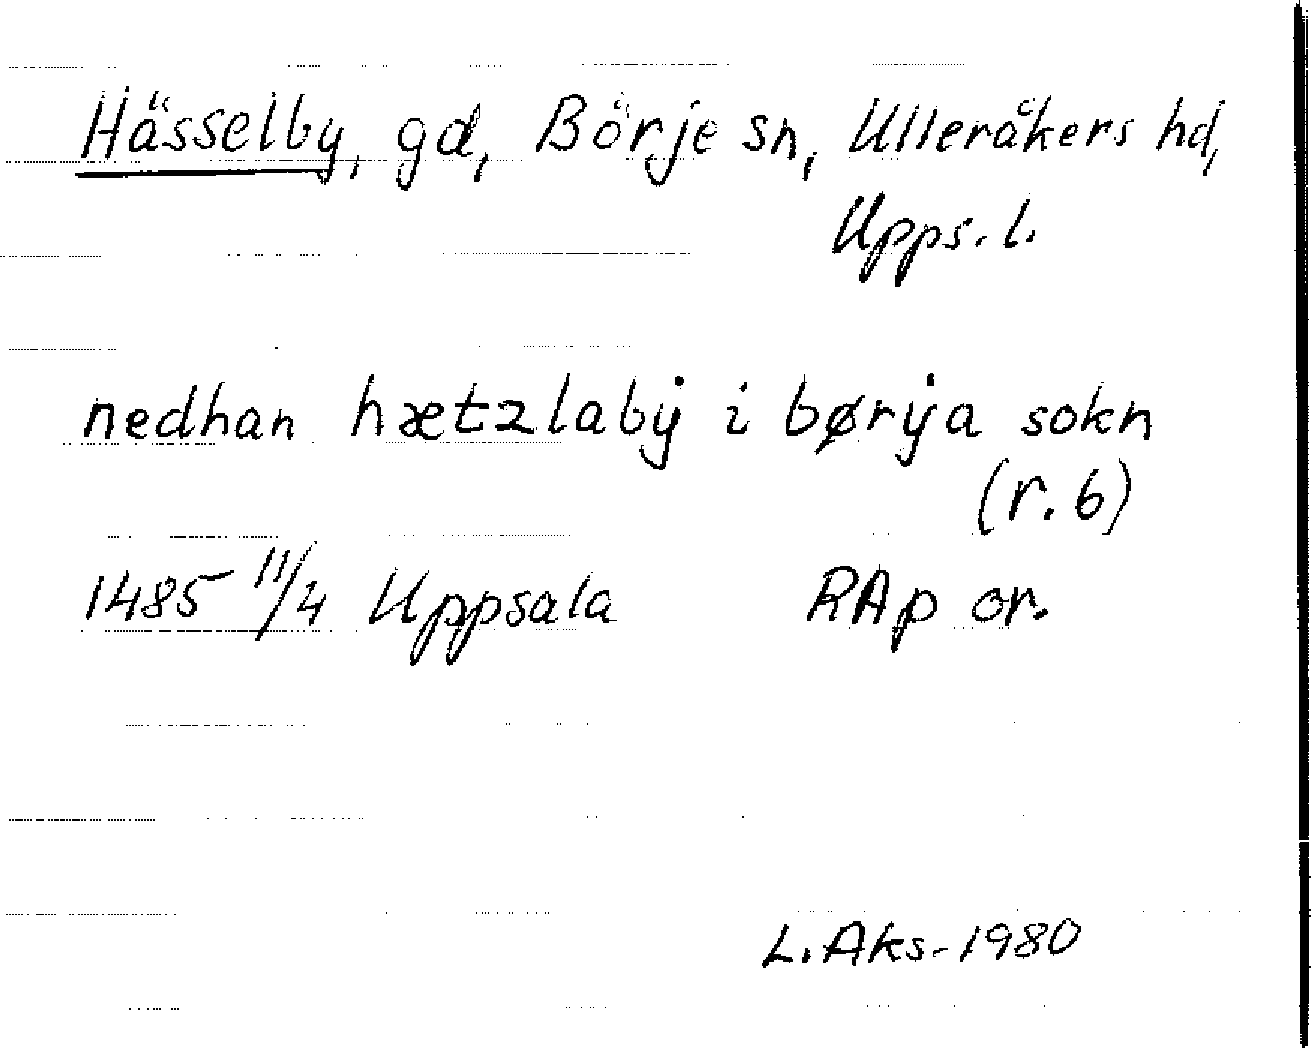 Hässelby, gd, Börje sn, Ulleråkers hd,
Upps. l.
nedhan hætzlabẏ i børẏa sokn
(r. 6)
1485 11/4 Uppsala RAp or.
L. Aks. 1980